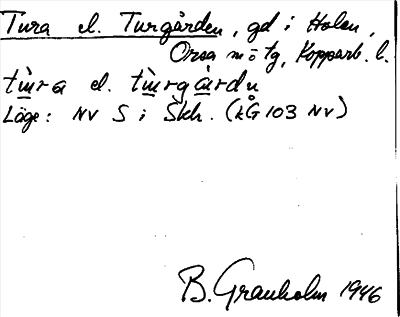 Tura el. Turgården, gd i Holen,
Orsa sn ö tg, Kopparb. l.
tùra el. tùrgàrdn
Läge: NV S i Skh. (kG 103 NV)
B. Granholm 1946